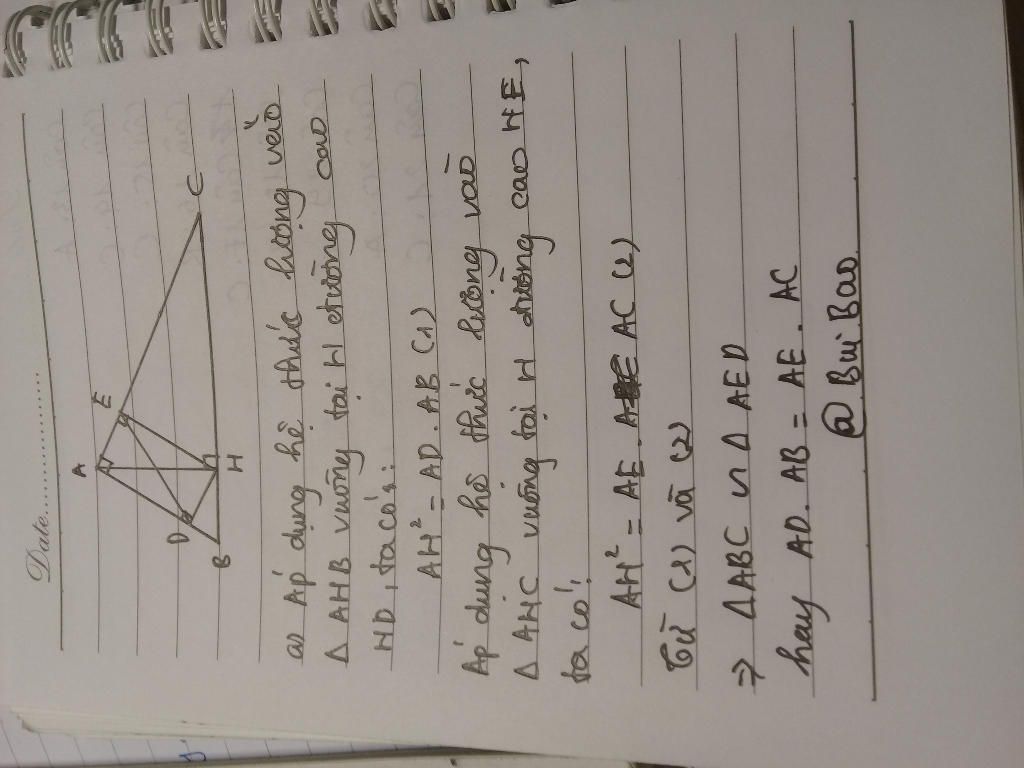 Date....................
A
E
D
B
H
C
a) Áp dụng hệ thức lượng vào
Δ AHB vuông tại H đường cao
HD, ta có:
AH² = AD. AB (1)
Áp dụng hệ thức lượng vào
Δ AHC vuông tại H đường cao HE,
ta có:
AH² = AE. AC (2)
Từ (1) và (2)
⇒ Δ ABC ∽ Δ AED
hay AD. AB = AE. AC
@ Bui Bao